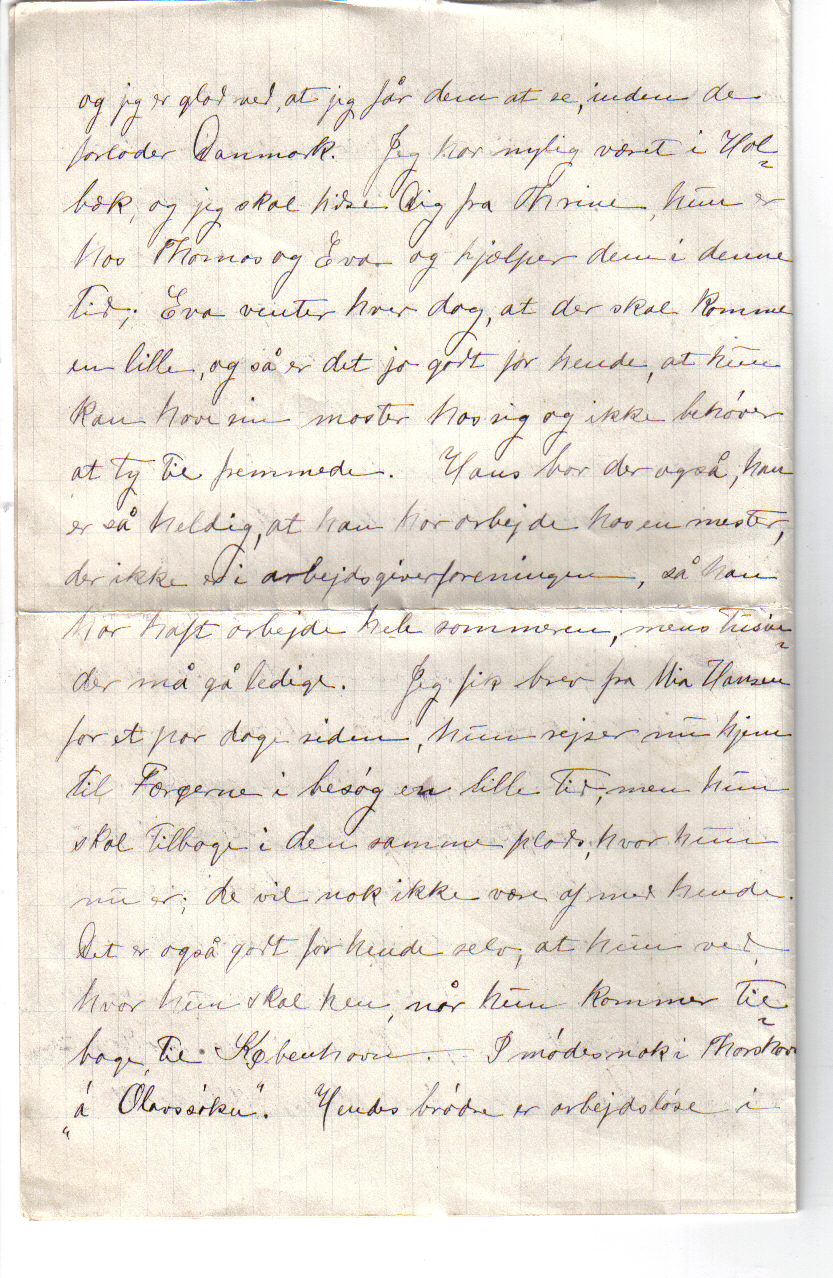 og jeg er glad ved, at jeg får dem at se, inden de
forlader Danmark. Jeg har nylig været i Hol-
bæk, og jeg skal hilse Dig fra Thrine, hun er
hos Thomas og Eva og hjælper dem i denne
Tid; Eva venter hver dag, at der skal komme
en lille, og så er det jo godt for hende, at hun
kan have sin moster hos sig og ikke behøver
at ty til fremmede. Hans bor der også, han
er så heldig, at han har arbejde hos en mester,
der ikke er i arbejdsgiverforeningen, så han
har haft arbejde hele sommeren, mens tusin-
der må gå ledige. Jeg fik brev fra Mia Hansen
for et par dage siden, hun rejser nu hjem
til Færøerne i besøg en lille Tid, men hun
skal tilbage i den samme plads, hvor hun
nu er; de vil nok ikke være af med hende.
Det er også godt for hende selv, at hun ved,
hvor hun skal hen, når hun kommer til-
bage til København. I mødes nok i Thorshavn
„á Ólavsøku". Hendes brødre er arbejdsløse i